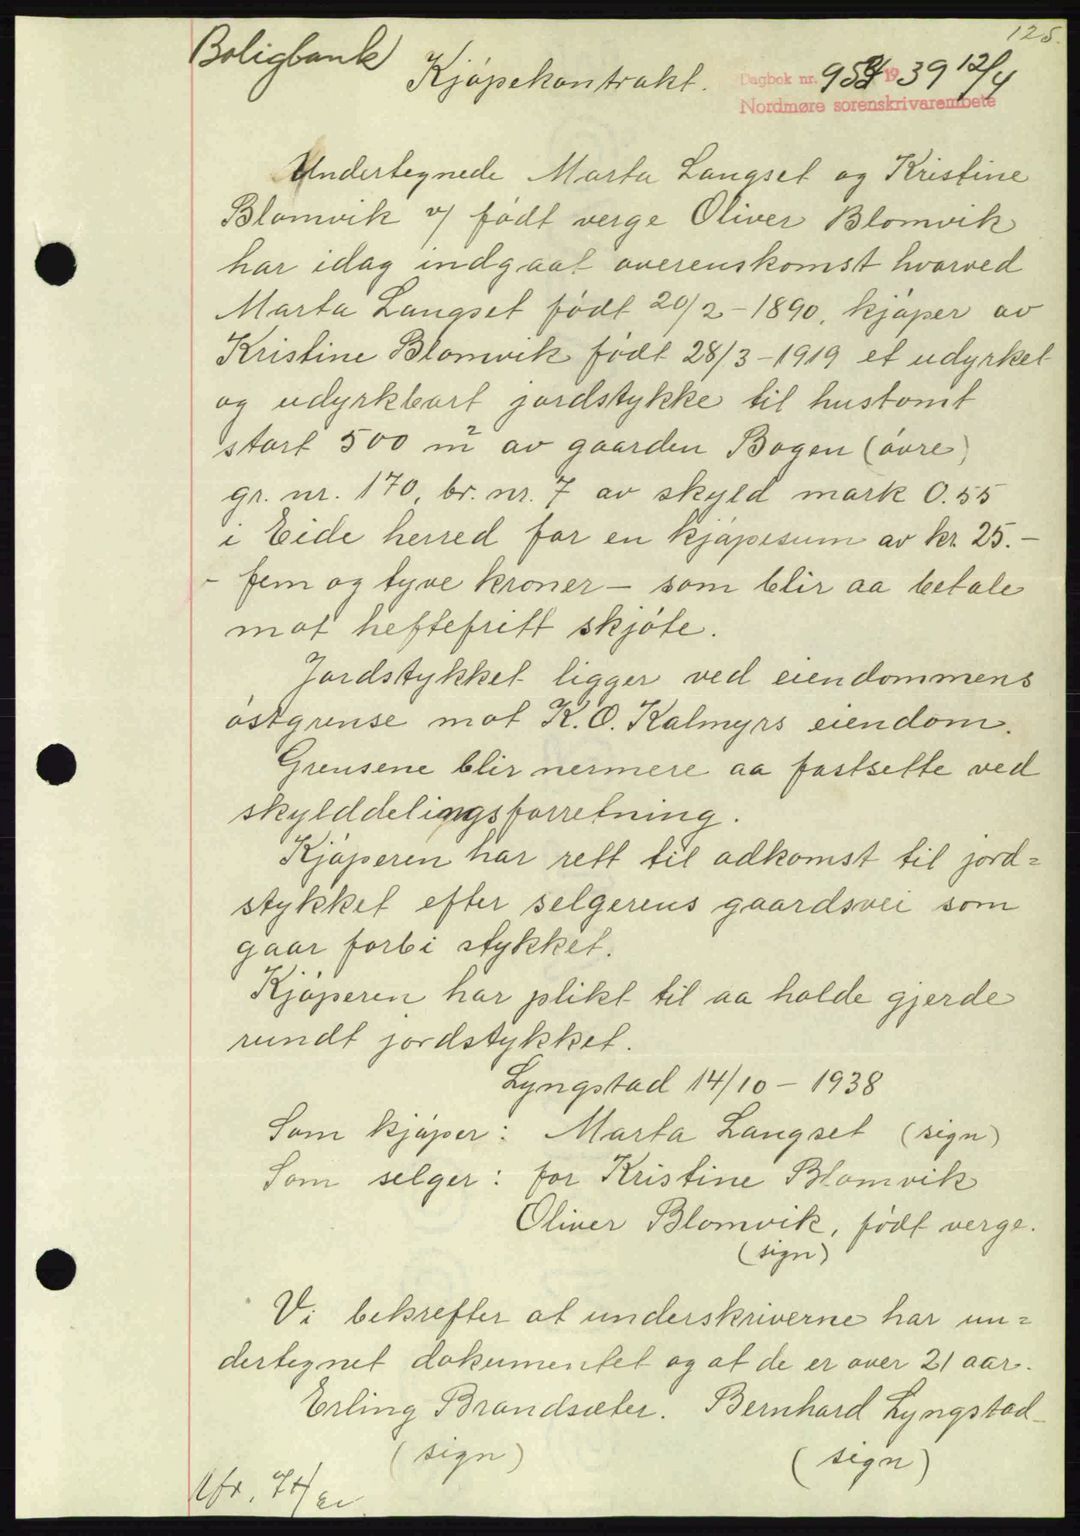 125.
Boligbank
Kjöpekontrakt.
Dagbok nr. 1939 12/4
Nordmøre sorenskrivarembete
Undertegnede Marta Langset og Kristine
Blomvik v/ födt verge Oliver Blomvik
har idag indgaat overenskomst hvorved
Marta Langset födt 20/2-1890, kjöper av
Kristine Blomvik födt 28/3-1919 et udyrket
og udyrkbart jordstykke til hustomt
stort 500 m² av gaarden Bogen (övre)
gr. nr. 170, br. nr. 7 av skyld mark 0.55
i Eide herred for en kjöpesum av kr. 25.-
- fem og tyve kroner - som blir aa betale
mot heftefritt skjöte.
Jordstykket ligger ved eiendommens
östgrense mot K. O. Kalmyrs eiendom.
Grensene blir nermere aa fastsette ved
skylddelingsforretning.
Kjöperen har rett til adkomst til jord=
stykket efter selgerens gaardsvei som
gaar forbi stykket.
Kjöperen har plikt til aa holde gjerde
rundt jordstykket.
Lyngstad 14/10-1938
Som kjöper: Marta Langset (sign)
Som selger: for Kristine Blomvik
Oliver Blomvik, födt verge.
(sign)
Vi bekrefter at underskriverne har un=
dertegnet dokumentet og at de er over 21 aar.
Erling Brandsæter. Bernhard Lyngstad
(sign) (sign)